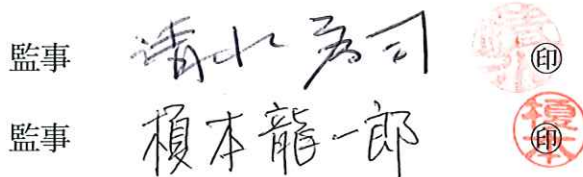 監事 清水 秀司 ㊞
監事 榎本龍一郎 ㊞